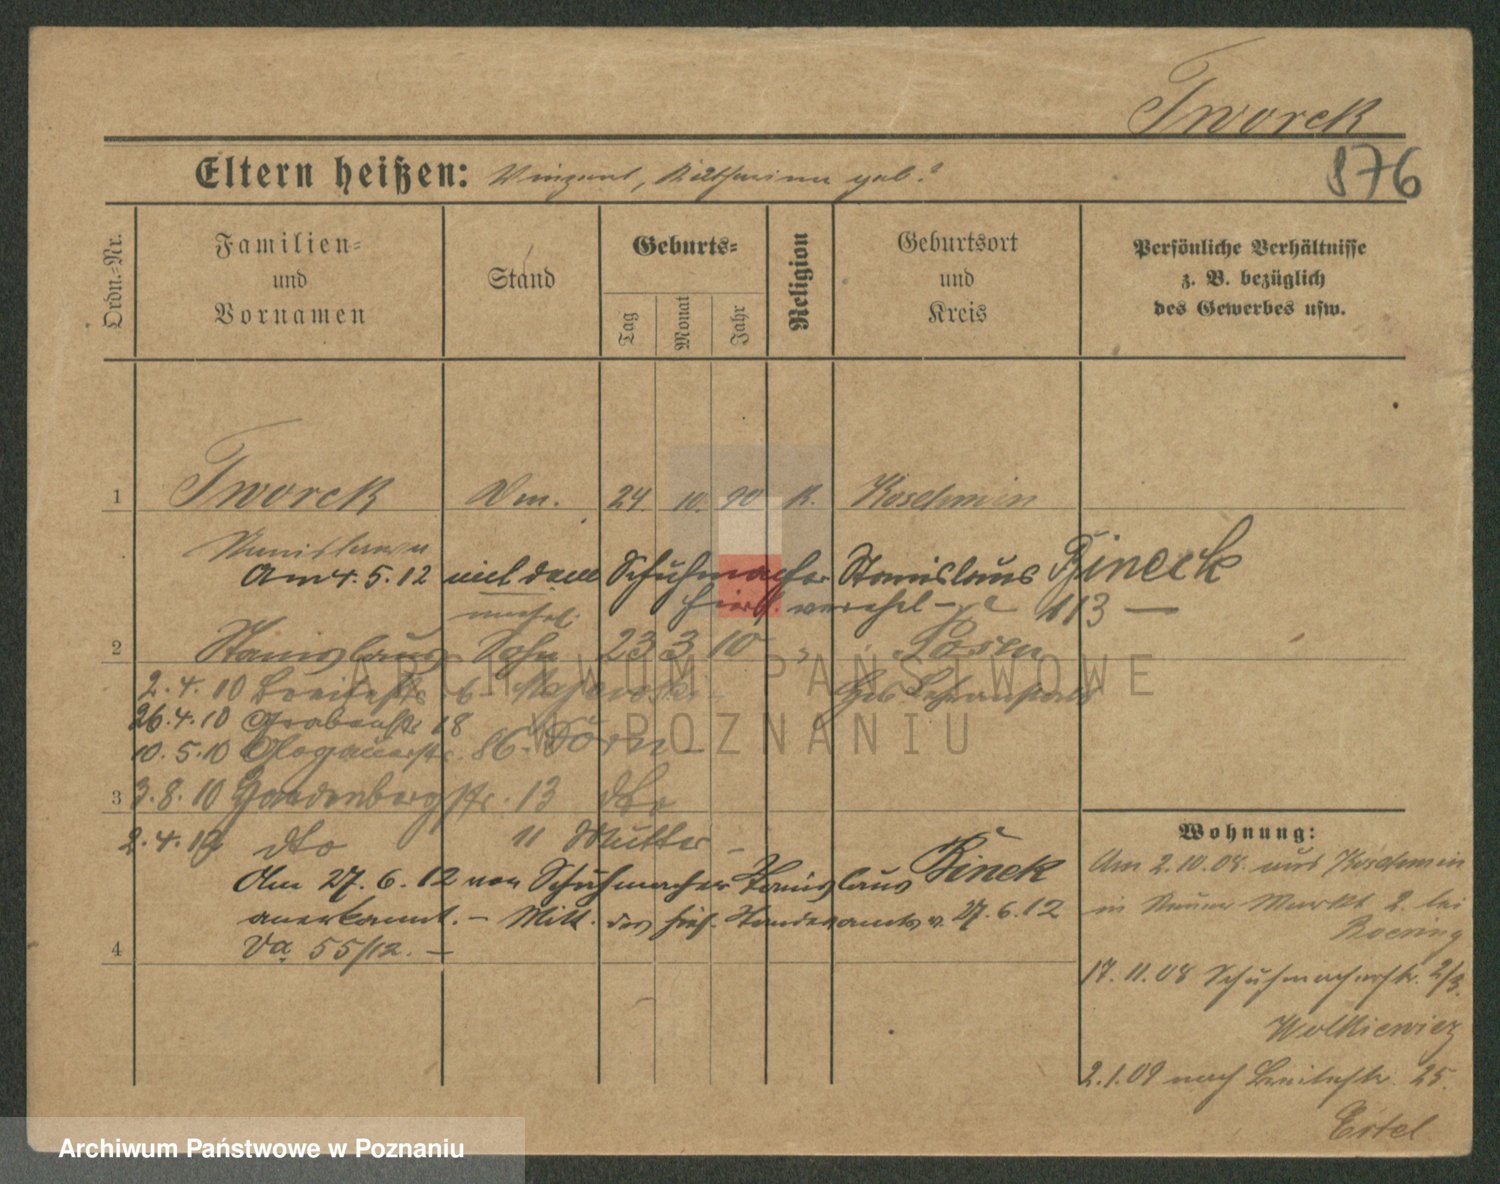 Tworek
876
Eltern heißen: Vinzent, Katharina geb. ?
Ordn.=Nr.
Familien=
und
Vornamen
Stand
Geburts=
Tag
Monat
Jahr
Religion
Geburtsort
und
Kreis
Persönliche Verhältnisse
z. B. bezüglich
des Gewerbes usw.
1 Tworek 24 10. 90 K. Koschmin
Stanislawa
Am 4.5.12 mit dem Schuhmacher Stanislaus Bineck
hier verehel. 113 —
unehel.
2 Stanislaus Sohn 23 3 10 " Posen
2.4.10 Breitestr. 6 Geb. Lehranstalt
26.4.10 Grabenstr. 18
10.5.10 Glogauerstr. 86.
3 3.8.10 Gaudenbergstr. 13 dto
2.4.12 dto 11 Mutter —
Am 27.6.12 von Schuhmacher Stanislaus Binek
anerkannt. — Mitt. des hies. Standesamts v. 27.6.12
4 Va 55/12. —
Wohnung:
Am 2.10.08. aus Koschmin
in Neuer Markt 2. bei
Boening
17.11.08 Schuhmacherstr. 2/3.
Wolkiewicz
2.1.09 nach Breitestr. 25.
Ertel
ARCHIWUM PAŃSTWOWE
W POZNANIU
Archiwum Państwowe w Poznaniu